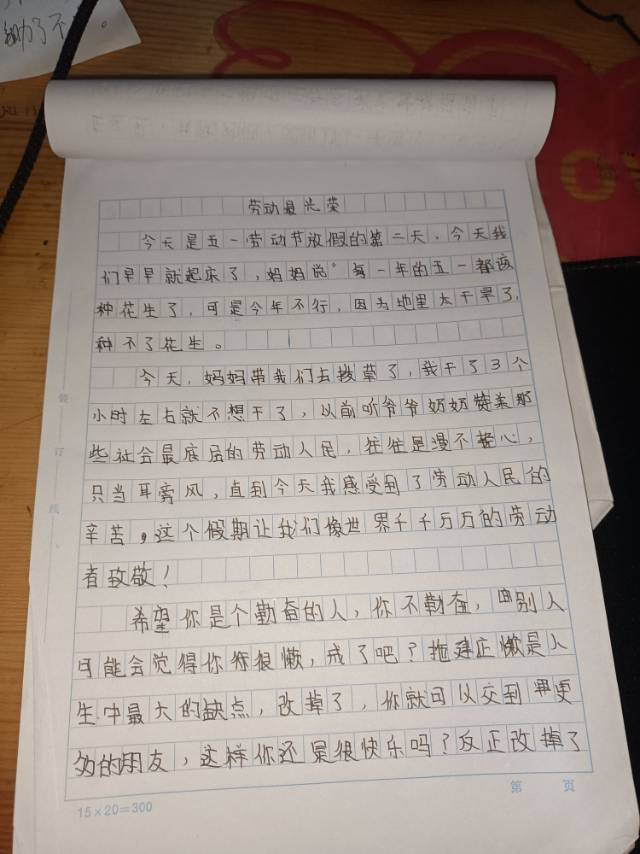 助了不。
劳动最光荣
今天是五一劳动节放假的第二天，今天我
们早早就起床了，妈妈说"每一年的五一都该
种花生了，可是今年不行，因为地里太干旱了，
种不了花生。
今天，妈妈带我们去拔草了，我干了3个
小时左右就不想干了，以前听爷爷奶奶赞美那
些社会最底层的劳动人民，往往是漫不经心，
只当耳旁风，直到今天我感受到了劳动人民的
辛苦，这个假期让我们像世界千千万万的劳动
者致敬！
希望你是个勤奋的人，你不勤奋，别人
可能会觉得你很懒，戒了吧？拖延懒是人
生中最大的缺点，改掉了，你就可以交到更
多的朋友，这样你还是很快乐吗？反正改掉了
装
订
线
15×20=300
第 页